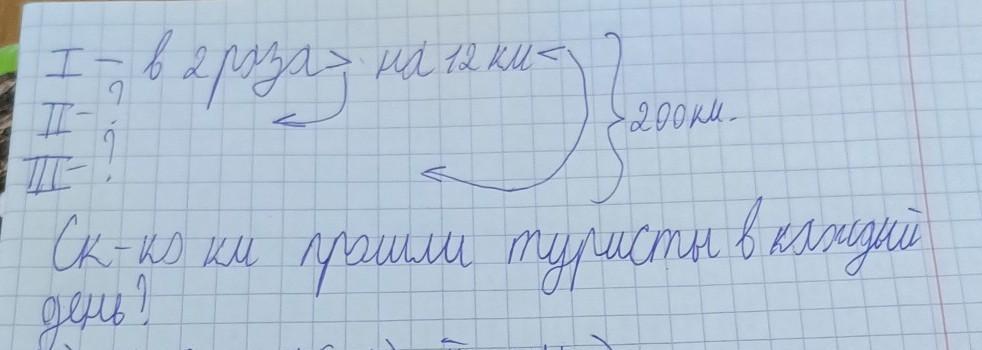 I – в 2 раза > на 12 км < } 200км.
II – ?
III – ?
Ск-ко км прошли туристы в каждый
день?